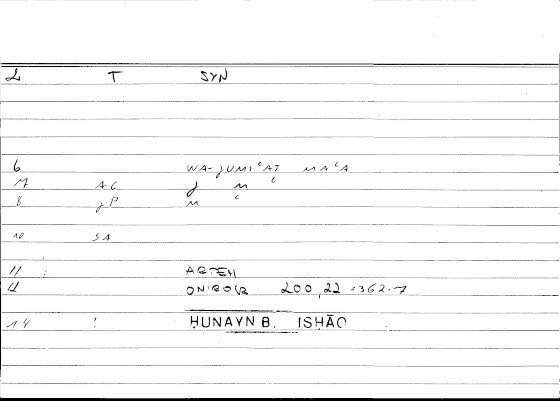 2 T SYN
6 WA-JUMIʿAT MAʿA
7 AC J M ʿ
8 JP M ʿ
10 SA
11 : ARTEM
12 ONIROCR 200,22 = 362.7
14 ! ḤUNAYN B. ISḤĀQ